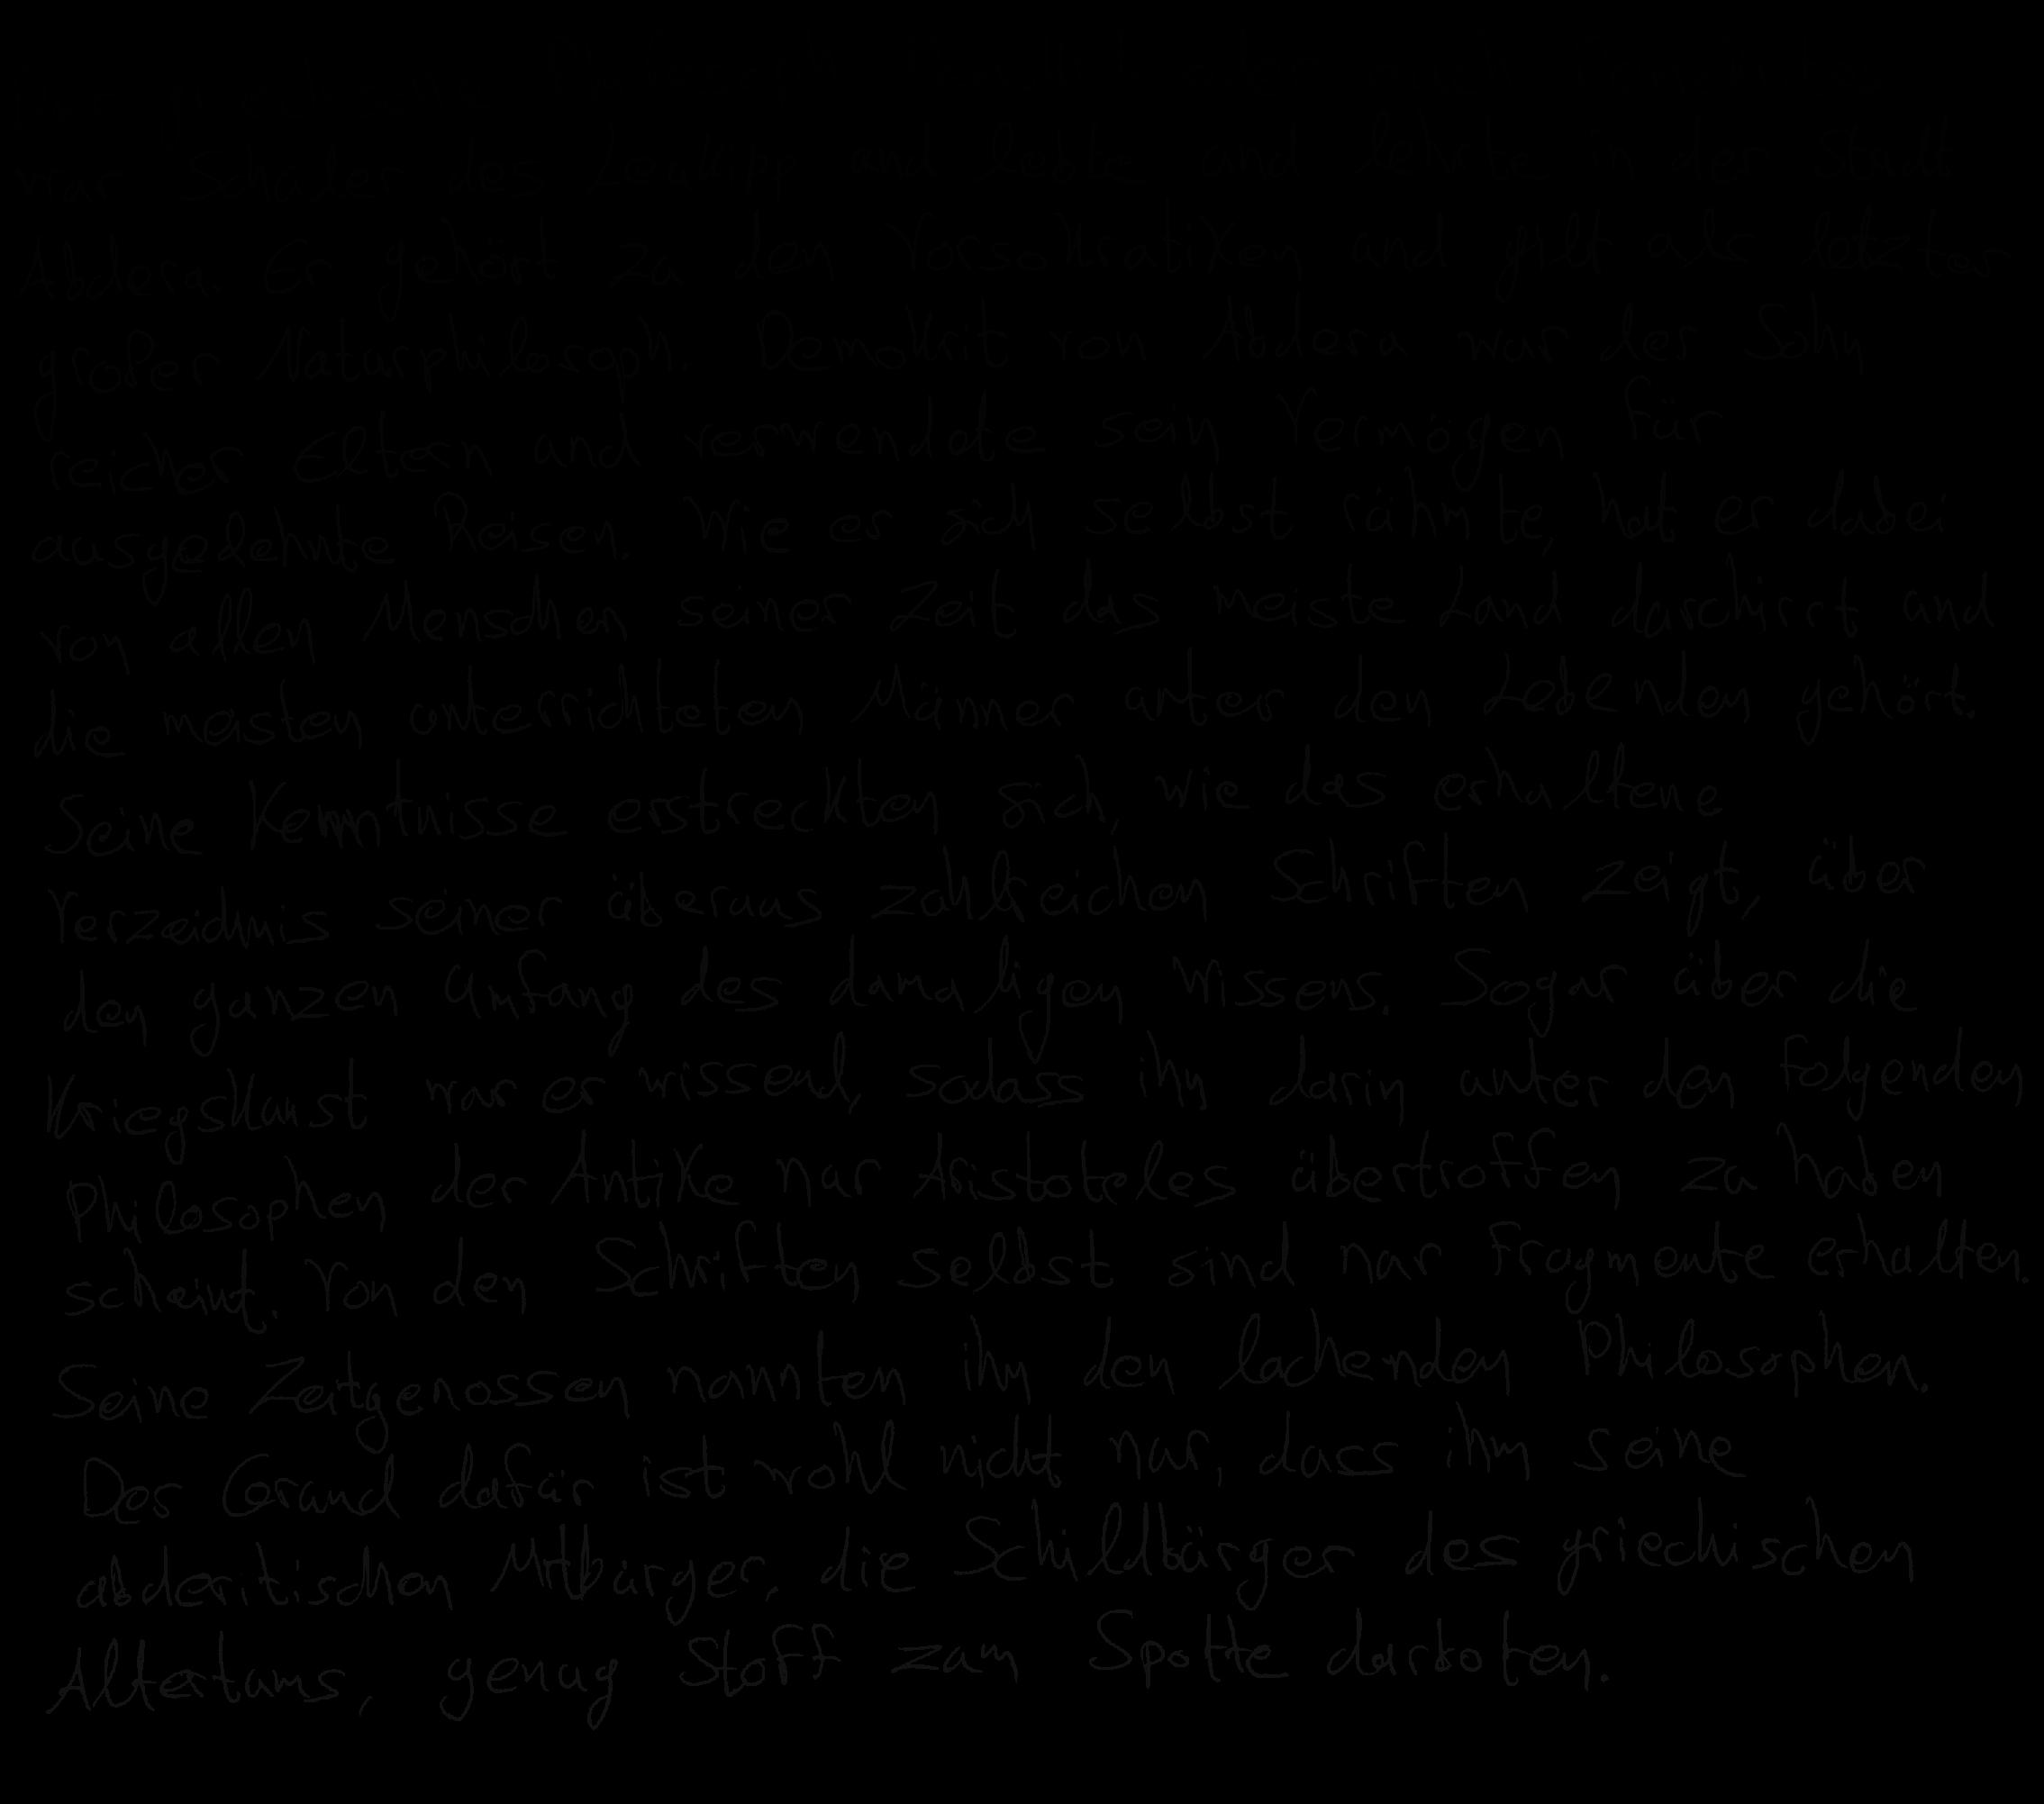 war Schüler des Leukipp und lebte und lehrte in der Stadt
Abdera. Er gehört zu den Vorsokratiken und gilt als letzter
großer Naturphilosoph. Demokrit von Abdera war der Sohn
reicher Eltern und verwendete sein Vermögen für
ausgedehnte Reisen. Wie er sich selbst rühmte, hat er dabei
von allen Menschen seiner Zeit das meiste Land durchirrt und
die meisten unterrichteten Männer unter den Lebenden gehört.
Seine Kenntnisse erstreckten sich, wie das erhaltene
Verzeichnis seiner überaus zahlreichen Schriften zeigt, über
den ganzen Umfang des damaligen Wissens. Sogar über die
Kriegskunst war er wissend, sodass ihn darin unter den folgenden
Philosophen der Antike nur Aristoteles übertroffen zu haben
scheint. Von den Schriften selbst sind nur Fragmente erhalten.
Seine Zeitgenossen nannten ihn den lachenden Philosophen.
Der Grund dafür ist wohl nicht nur, dass ihm seine
abderitischen Mitbürger, die Schildbürger des griechischen
Altertums, genug Stoff zum Spotte darboten.